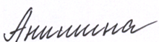 Анишина